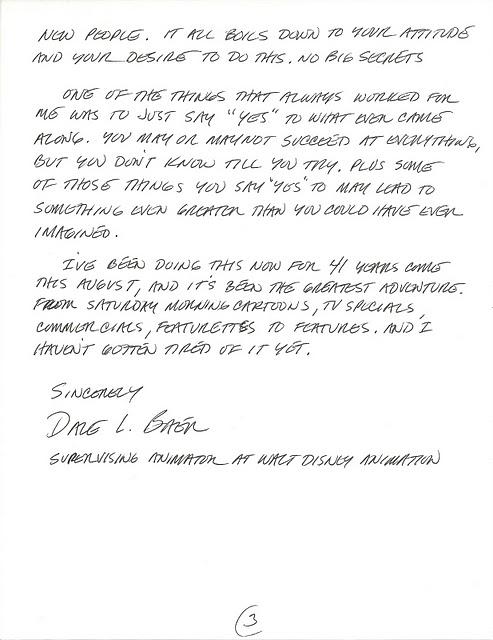 NEW PEOPLE. IT ALL BOILS DOWN TO YOUR ATTITUDE
AND YOUR DESIRE TO DO THIS. NO BIG SECRETS
ONE OF THE THINGS THAT ALWAYS WORKED FOR
ME WAS TO JUST SAY "YES" TO WHAT EVER CAME
ALONG. YOU MAY OR MAY NOT SUCCEED AT EVERYTHING,
BUT YOU DON'T KNOW TILL YOU TRY. PLUS SOME
OF THOSE THINGS YOU SAY "YES" TO MAY LEAD TO
SOMETHING EVEN GREATER THAN YOU COULD HAVE EVER
IMAGINED.
I'VE BEEN DOING THIS NOW FOR 41 YEARS COME
THIS AUGUST, AND IT'S BEEN THE GREATEST ADVENTURE.
FROM SATURDAY MORNING CARTOONS, TV SPECIALS,
COMMERCIALS, FEATURETTES TO FEATURES. AND I
HAVEN'T GOTTEN TIRED OF IT YET.
SINCERELY
DALE L. BAER
SUPERVISING ANIMATOR AT WALT DISNEY ANIMATION
3